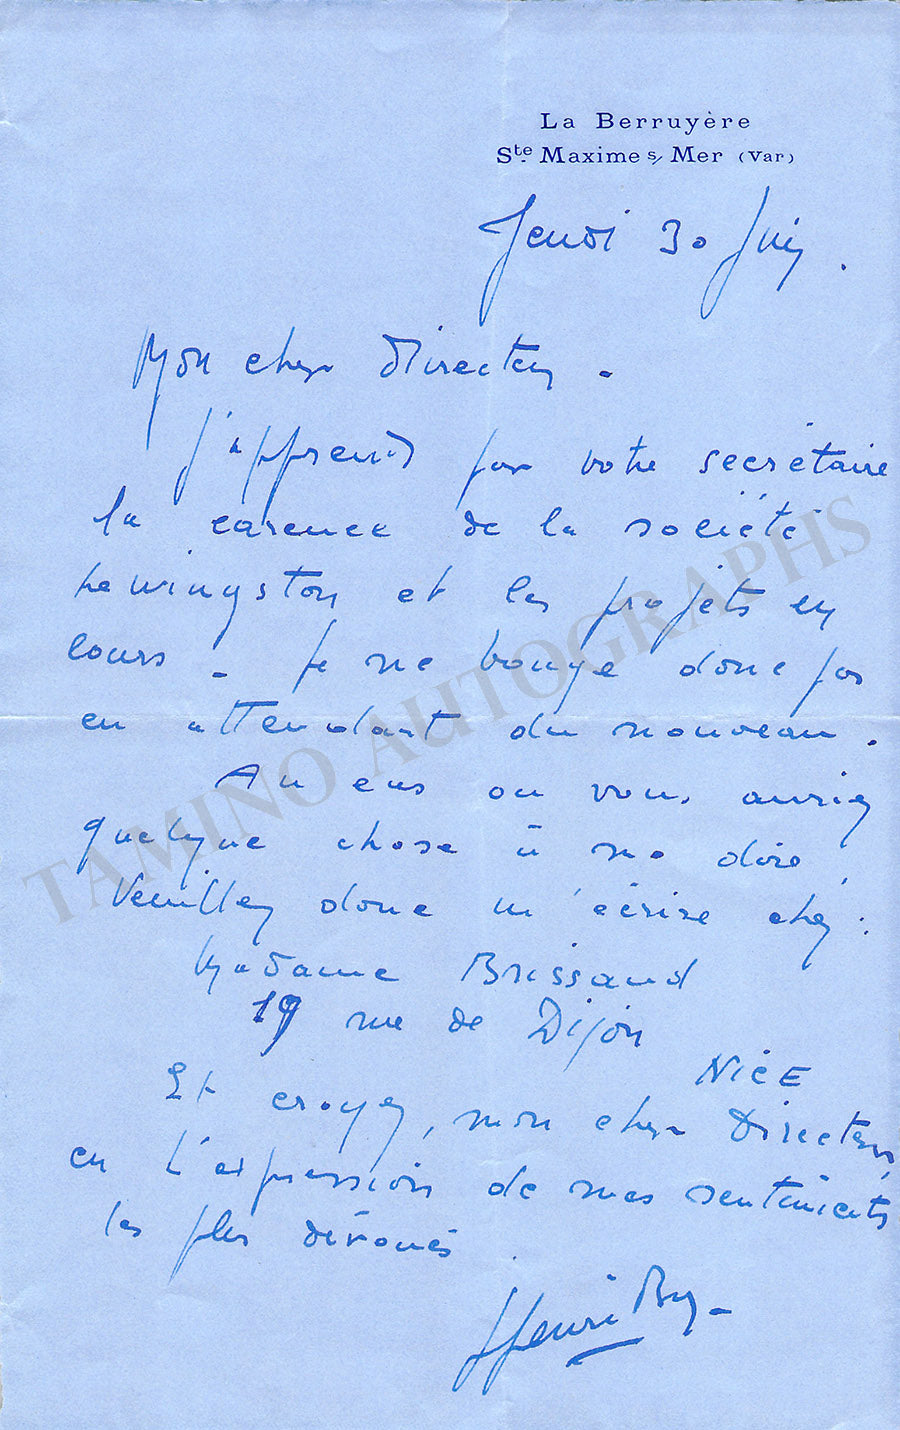 La Berruyère
Ste Maxime s/ Mer (Var)
Jeudi 30 Juin.
Mon cher Directeur -
J'apprends par votre secrétaire
la carence de la société
Lewingston et les projets en
cours - Je ne bouge donc pas
en attendant du nouveau.
Au cas ou vous auriez
quelque chose à me dire,
Veuillez donc m'écrire chez :
Madame Brissaud
19 rue de Dijon
NicE
Et croyez, mon cher Directeur,
en l'expression de mes sentiments
les plus dévoués.
Henri
TAMINO AUTOGRAPHS